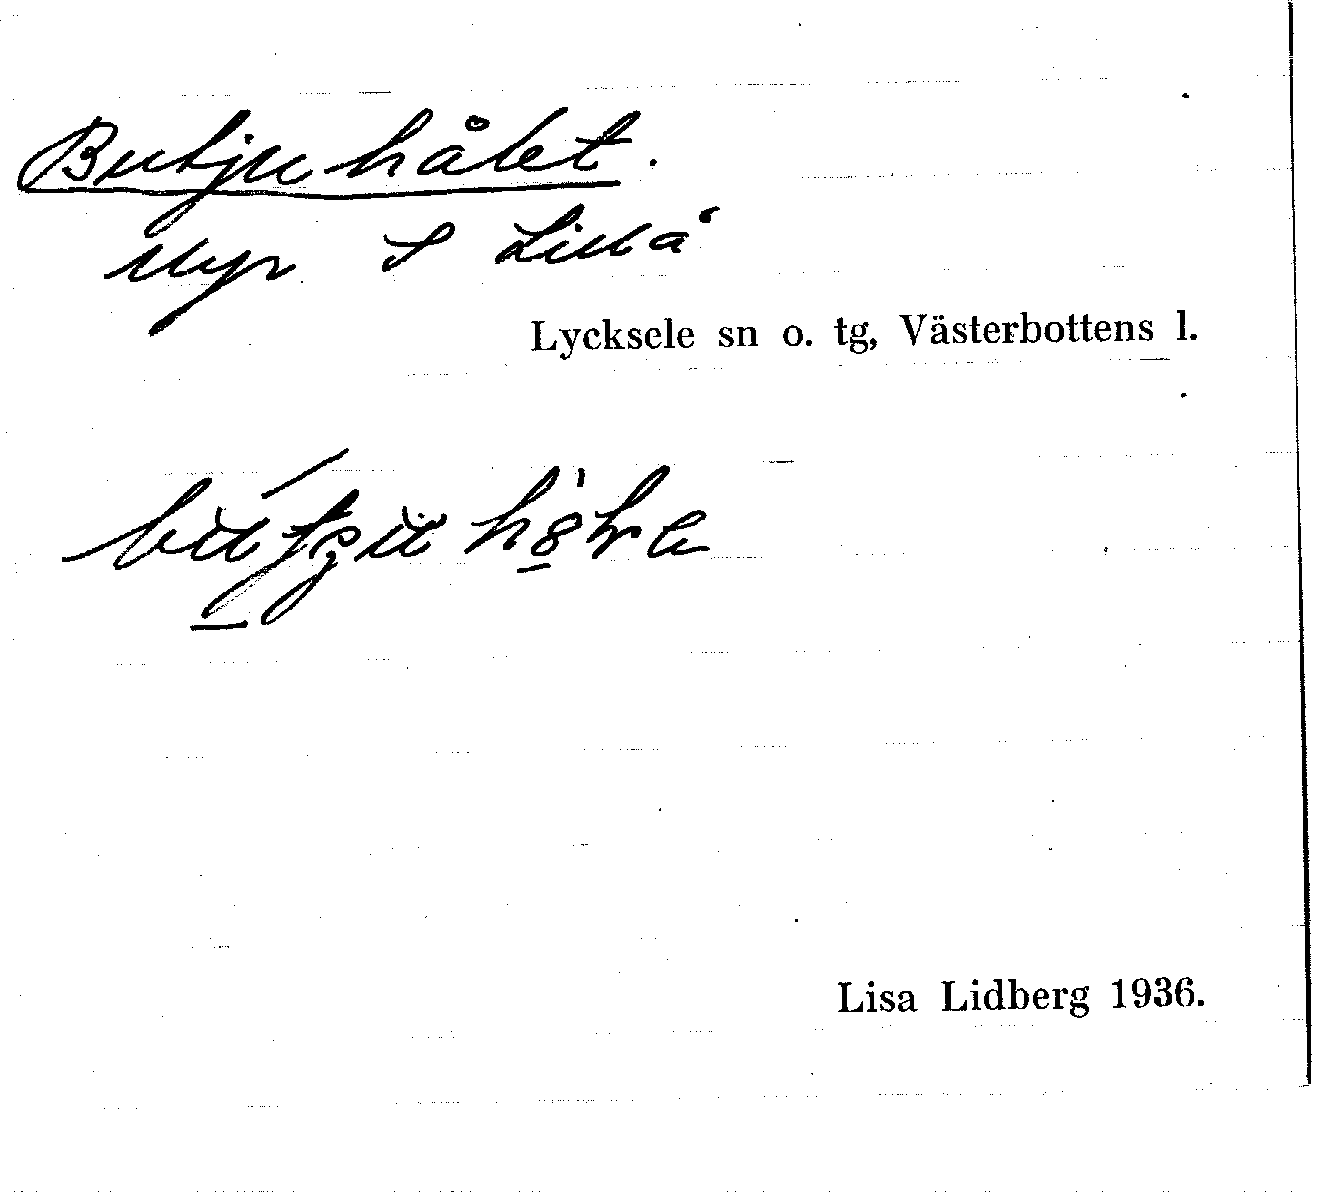 Butjuhålet.
Myr S Lillå
Lycksele sn o. tg, Västerbottens l.
Lisa Lidberg 1936.